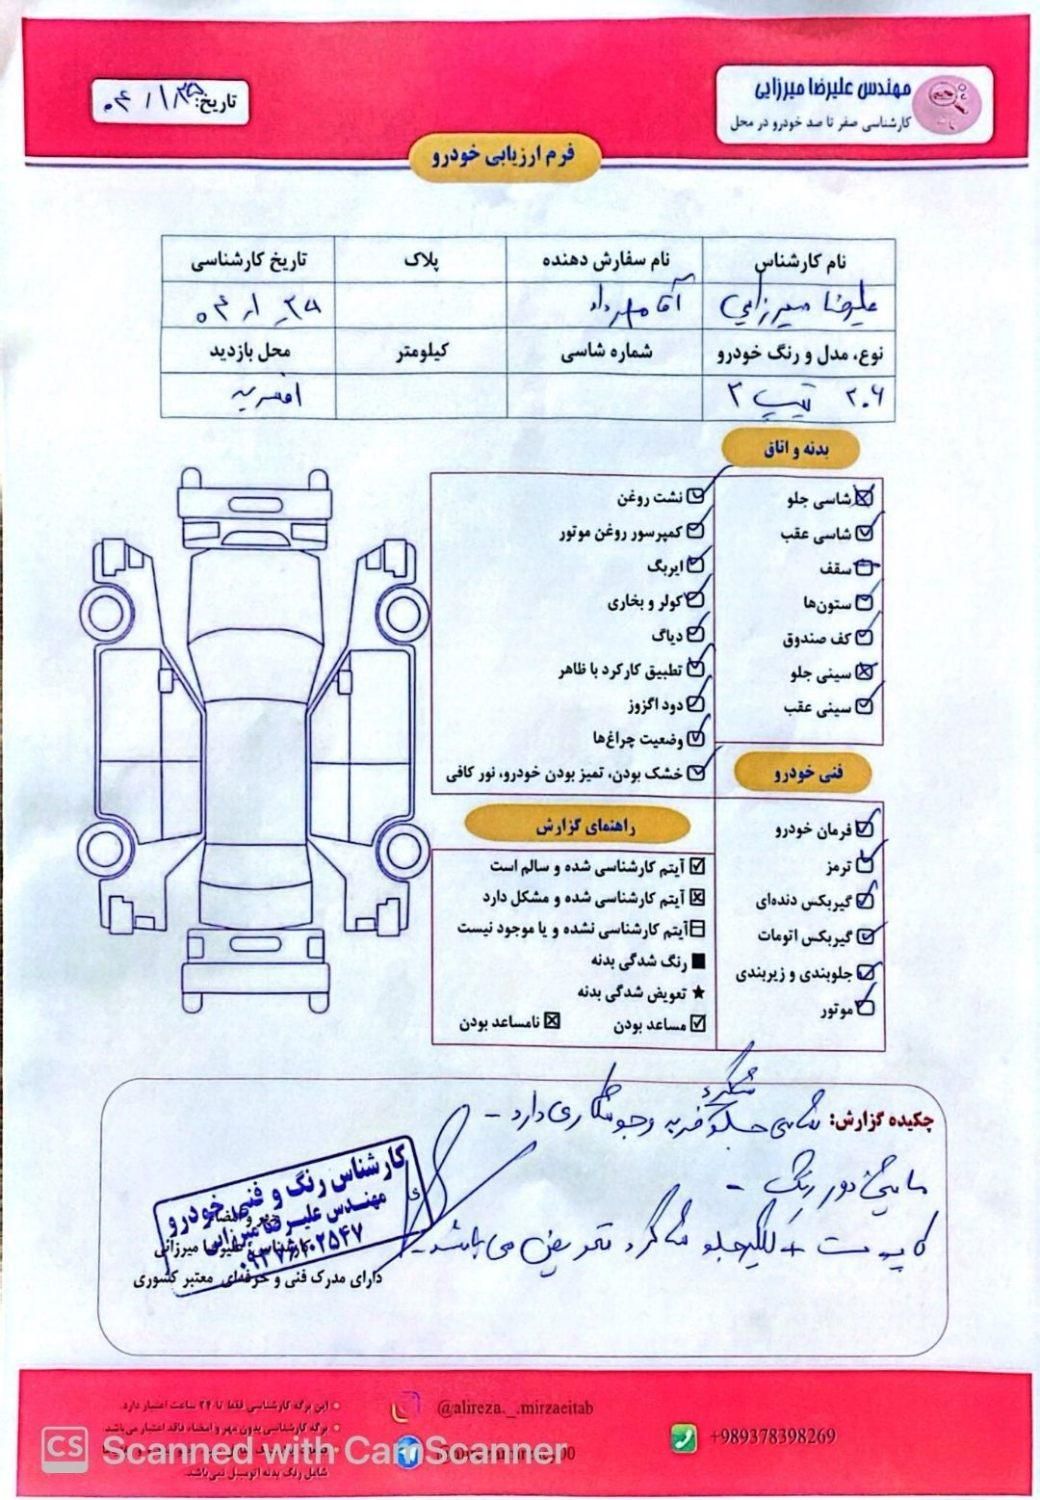 مهندس علیرضا میرزایی
کارشناسی صفر تا صد خودرو در محل
تاریخ: ۰۴/۱/۲۵
فرم ارزیابی خودرو
نام کارشناس
نام سفارش دهنده
پلاک
تاریخ کارشناسی
علیرضا میرزایی
آقا مهرداد
نوع، مدل و رنگ خودرو
شماره شاسی
کیلومتر
محل بازدید
۲۰۶ تیپ ۲
افسریه
بدنه و اتاق
شاسی جلو
شاسی عقب
سقف
ستون‌ها
کف صندوق
سینی جلو
سینی عقب
نشت روغن
کمپرسور روغن موتور
ایربگ
کولر و بخاری
دیاگ
تطبیق کارکرد با ظاهر
دود اگزوز
وضعیت چراغ‌ها
خشک بودن، تمیز بودن خودرو، نور کافی
فنی خودرو
فرمان خودرو
ترمز
گیربکس دنده‌ای
گیربکس اتومات
جلوبندی و زیربندی
موتور
راهنمای گزارش
آیتم کارشناسی شده و سالم است
آیتم کارشناسی شده و مشکل دارد
آیتم کارشناسی نشده و یا موجود نیست
رنگ شدگی بدنه
تعویض شدگی بدنه
مساعد بودن
نامساعد بودن
چکیده گزارش: شاسی جلو شاگرد ضربه و جوشکاری دارد -
ماشین دور رنگ -
کاپوت + گلگیر جلو شاگرد تعویض می باشد -
کارشناس رنگ و فنی خودرو
مهندس علیرضا میرزایی
مهر و امضاء
کارشناس: علیرضا میرزائی
دارای مدرک فنی و حرفه‌ای معتبر کشوری
این برگه کارشناسی فقط تا ۲۴ ساعت اعتبار دارد.
برگه کارشناسی بدون مهر و امضاء فاقد اعتبار می‌باشد.
شامل رنگ بدنه اتومبیل نمی‌باشد.
@alireza._.mirzaeitab
+989378398269
CS Scanned with CamScanner